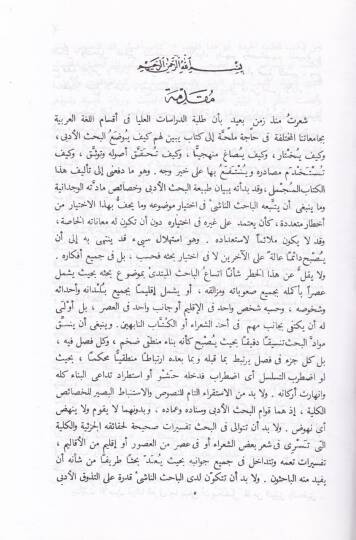 بسم الله الرحمن الرحيم
مقدمة
شعرت منذ زمن بعيد بأن طلبة الدراسات العليا فى أقسام اللغة العربية
بجامعاتنا المختلفة فى حاجة ملحّة إلى كتاب يبين لهم كيف يوضع البحث الأدبى ،
وكيف يُختار ، وكيف يُصاغ منهجيًّا ، وكيف تُحقَّق أصوله وتوثَّق ، وكيف
تُستخدم مصادره ويُنتفع بها على خير وجه . وهو ما دفعنى إلى تأليف هذا
الكتاب المجمل ، وقد بدأته ببيان طبيعة البحث الأدبى وخصائص مادته الوجدانية
وما ينبغى أن يتّبعه الباحث الناشئ فى اختيار موضوعه وما يحفّ بهذا الاختيار من
أخطار متعددة ، كأن يعتمد على غيره فى اختياره دون أن تكون له معاناته الخاصة ،
وقد لا يكون ملائماً لاستعداده . وهو استهلال سيىء قد ينتهى به إلى أن
يُصبح دائماً عالة على الآخرين لا فى اختيار بحثه فحسب ، بل فى جميع أفكاره .
ولا يقل عن هذا الخطر شأناً اتساع الباحث المبتدئ بموضوع بحثه بحيث يشمل
عصراً بأكمله بجميع صعوباته ومزالقه ، أو يشمل إقليماً بجميع بلدانه وأحداثه
وشخوصه ، وحسبه شخص واحد فى الإقليم أو جانب واحد فى العصر ، بل أولى
له أن يكتفى بجانب مهم فى أحد الشعراء أو الكتّاب النابهين . وينبغى أن ينسّق
مواد البحث تنسيقاً دقيقاً بحيث يُصبح كأنه بناء منطقى ضخم ، وكل فصل فيه ،
بل كل جزء فى فصل يرتبط بما قبله وبما بعده ارتباطاً منطقيًّا محكماً ، بحيث
لو اضطرب التسلسل أى اضطراب فدخله حشو أو استطراد تداعى البناء كله
وانهارت أركانه . ولا بد من الاستقراء التام للنصوص والاستنباط البصير للخصائص
الكلية ، إذ هما قوام البحث الأدبى وسناده وعماده ، وبدونهما لا يقوم ولا ينهض
أى نهوض . ولا بد أن تتوالى فى البحث تفسيرات صحيحة لحقائقه الجزئية والكلية
التى تسرى فى شعر بعض الشعراء أو فى عصر من العصور أو إقليم من الأقاليم ،
تفسيرات تعمه وتتداخل فى جميع جوانبه بحيث يُعدّ بحثاً طريفاً من شأنه أن
يفيد منه الباحثون . ولا بد أن تتكون لدى الباحث الناشئ قدرة على التذوق الأدبى
٥